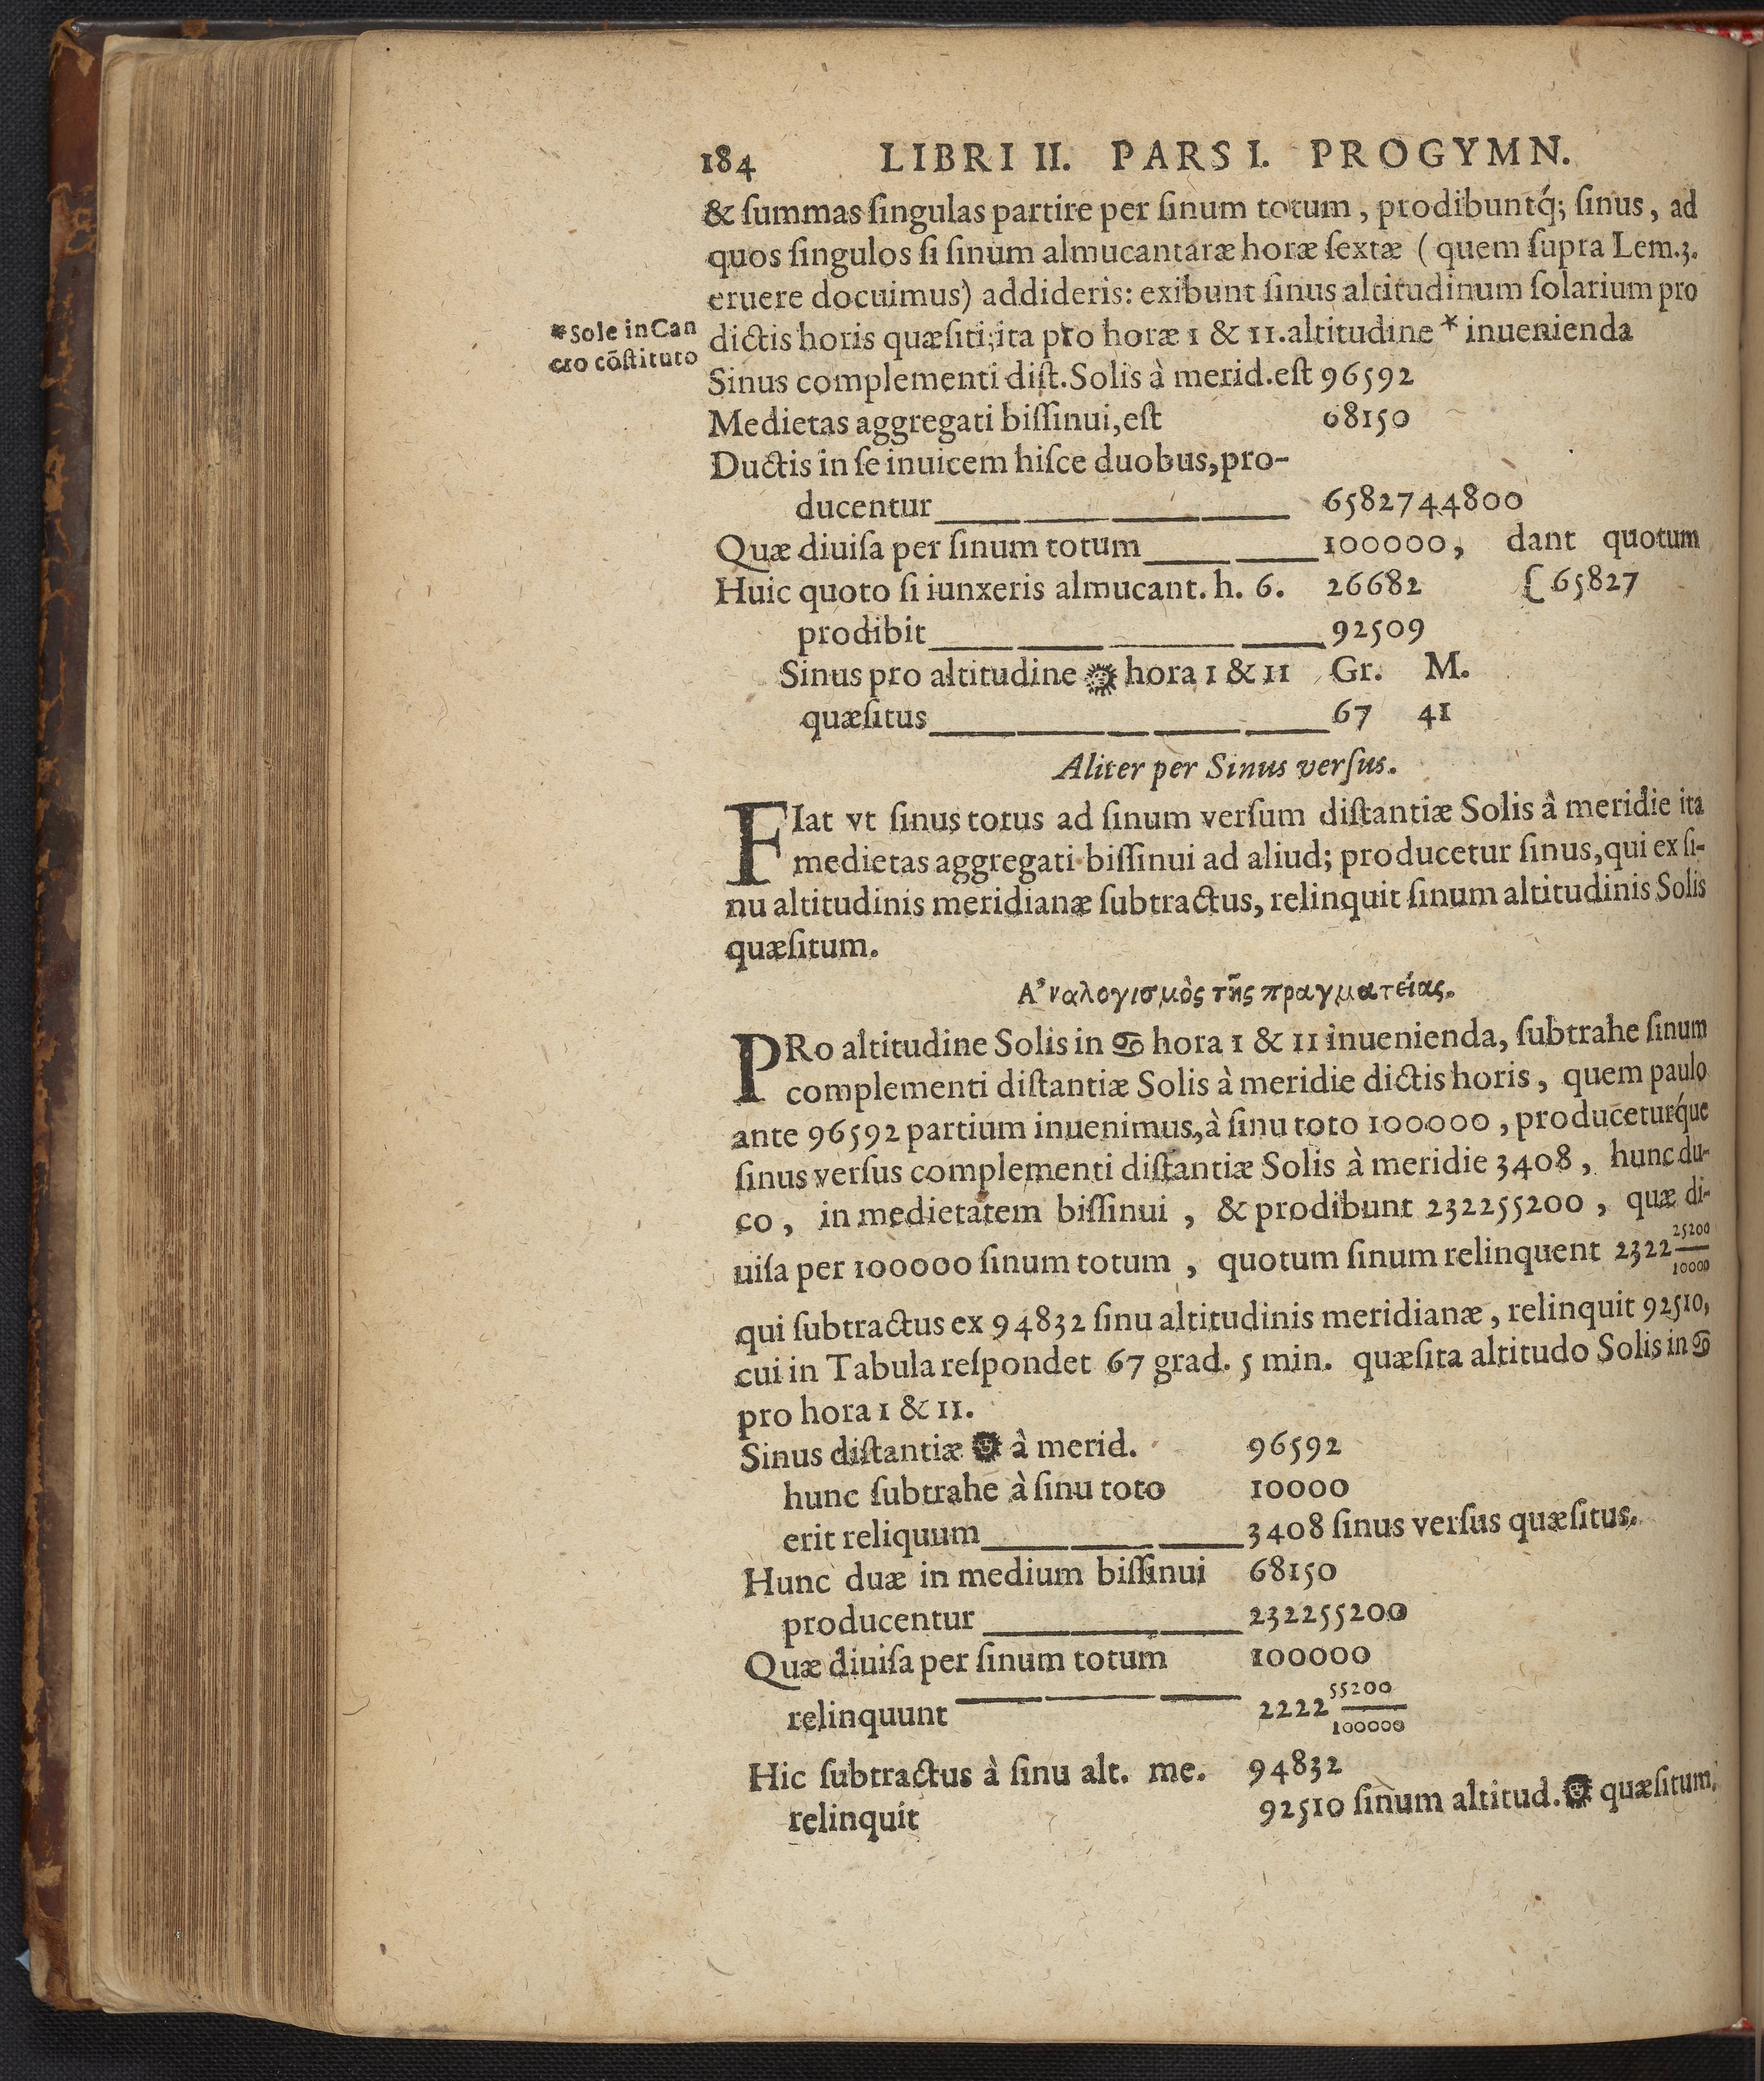 184 LIBRI II. PARS I. PROGYMN.
& ſummas ſingulas partire per ſinum totum, prodibuntq́; ſinus, ad
quos ſingulos ſi ſinum almucantaræ horæ ſextæ (quem ſupra Lem.3.
eruere docuimus) addideris: exibunt ſinus altitudinum ſolarium pro
dictis horis quæſiti; ita pro horæ 1 & 11. altitudine * inuenienda
*Sole in Can
cro cõſtituto
Sinus complementi diſt. Solis à merid. eſt 96592
Medietas aggregati biſſinui, eſt 68150
Ductis in ſe inuicem hiſce duobus, pro-
ducentur 6582744800
Quæ diuiſa per ſinum totum 100000, dant quotum
Huic quoto ſi iunxeris almucant. h. 6. 26682 {65827
prodibit 92509
Sinus pro altitudine ☉ hora 1 & 11 Gr. M.
quæſitus 67 41
Aliter per Sinus verſus.
FIat vt ſinus totus ad ſinum verſum diſtantiæ Solis â meridie ita
medietas aggregati biſſinui ad aliud; producetur ſinus, qui ex ſi-
nu altitudinis meridianæ ſubtractus, relinquit ſinum altitudinis Solis
quæſitum.
Α᾿ναλογισμὸς τῆς πραγματείας.
PRo altitudine Solis in ♋ hora 1 & 11 inuenienda, ſubtrahe ſinum
complementi diſtantiæ Solis à meridie dictis horis, quem paulo
ante 96592 partium inuenimus, à ſinu toto 100000, produceturq́ue
ſinus verſus complementi diſtantiæ Solis à meridie 3408, hunc du-
co, in medietatem biſſinui, & prodibunt 232255200, quæ di-
uiſa per 100000 ſinum totum, quotum ſinum relinquent 2322 25200/10000
qui ſubtractus ex 94832 ſinu altitudinis meridianæ, relinquit 92510,
cui in Tabula reſpondet 67 grad. 5 min. quæſita altitudo Solis in ♋
pro hora 1 & 11.
Sinus diſtantiæ ☉ â merid. 96592
hunc ſubtrahe à ſinu toto 10000
erit reliquum 3408 ſinus verſus quæſitus.
Hunc duæ in medium biſſinui 68150
producentur 232255200
Quæ diuiſa per ſinum totum 100000
relinquunt 2222 55200/100000
Hic ſubtractus à ſinu alt. me. 94832
relinquit 92510 ſinum altitud. ☉ quæſitum.